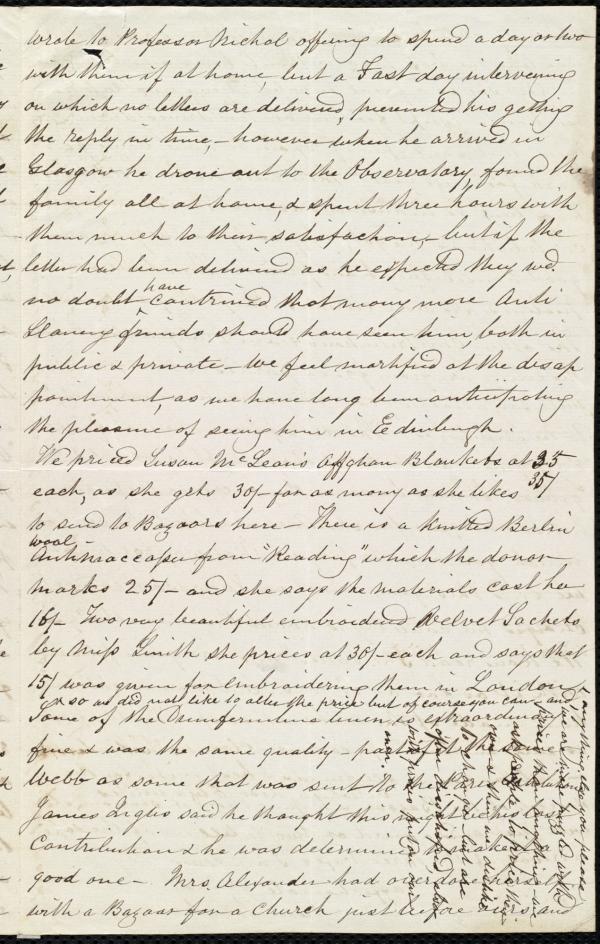 wrote to Professor Nichol offering to spend a day or two
with them if at home, but a Fast day intervening
on which no letters are delivered, prevented his getting
the reply in time, - however when he arrived in
Glasgow he drove out to the Observatory, found the
family all at home, & spent three hours with
them much to their satisfaction, - but if the
letter had been delivered as he expected they wd.
no doubt have contrived that many more Anti
Slavery friends should have seen him, both in
public & private - We feel mortified at the disap
pointment, as we have long been anticipating
the pleasure of seeing him in Edinburgh.
We priced Susan McLean's Affghan Blankets at 35
35/
each, as she gets 30/- for as many as she likes
to send to Bazaars here - There is a knitted Berlin
wool
Antimaccaser from "Reading" which the donor
marks 25/- and she says the materials cost her
16/- Two very beautiful embroidered Velvet Sachets
by Miss Smith she prices at 30/- each and says that
15/ was given for Embroidering them in London
& so we did not like to alter the price but of course you can and
Some of the Dunfermline linen is extraordinary
fine & was the same quality - part of the same
Webb as some that was sent to the Paris
James Inglis said he thought this might be his last
Contribution & he was determined to make it a
good one - Mrs. Alexander had over done herself
with a Bazaar for a Church just before ours and
anything else you please
we are more puzzled with
prices than anything